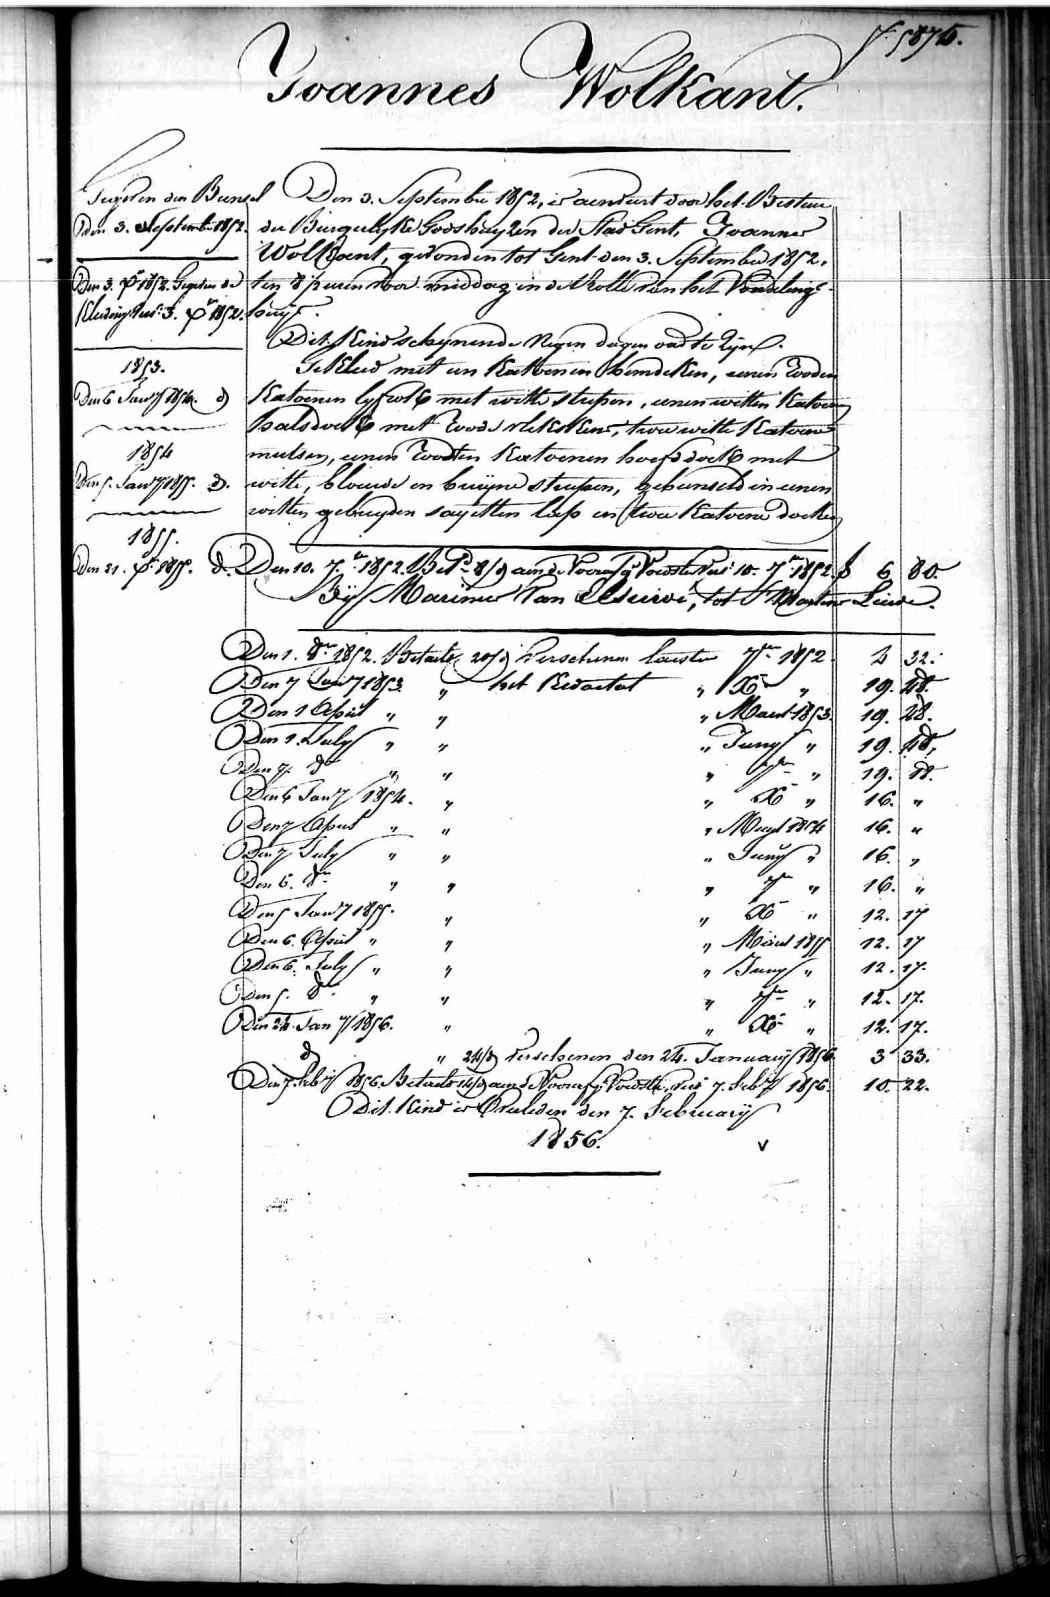 f° 5876.
Joannes Wolkant.
Gegeven den Bunsel
den 3. September 1852.
Den 3. 7br 1852. Gegeven de
Kleeding tus: 3. Xbr 1852.
1853.
Den 6 Jany 1854. d°
1854
Den 5. Jany 1855. d°.
1855.
Den 21. 1855. d°.
Den 3. September 1852, is aenveirt door het Bestuer
der Burgerlyke Godshuyzen der Stad Gent, Joannes
Wolkant, gevonden tot Gent den 3. September 1852,
ten 8 ueren voor middag in de Rolle van het Vondelinge-
huys.
Dit Kind schynende Negen dagen oud te zyn.
Gekleed met een Katoenen hemdeken, eenen Rooden
Katoenen lyfrok met witte streepen, eenen witten Katoenen
halsdoek met Roode vlekskens, twee witte Katoene
mutsen, eenen Rooden Katoenen hoofddoek met
witte, blauwe en bruyne streepen, gebunseld in eenen
witten gebruyden sayetten lap en twee Katoene doeken
Den 10. 7br 1852. Bet. 8/9 aen de Voorsz. Voedster tus 10- 7br 1852. f 6 80.
By Marinus Van , tot St Martens Leirde.
Den 1. 8br 1852. Betaelt 20/9 Verschenen laesten 7br 1852 2 32.
Den 7 Jany 1853. " het Kwartal " Xbr " 19. 28.
Den 1 April " " " Maert 1853. 19. 28.
Den 1. July " " " Juny " 19. 28.
Den 7. 8br " " " 7br " 19. 28.
Den 6 Jany 1854. " " Xbr " 16. "
Den 7 April " " " Maert 1854 16. "
Den 7 July " " " Juny " 16. "
Den 6. 8br " " " 7br " 16. "
Den 5 Jany 1855. " " Xbr " 12. 17
Den 6. April " " " Maert 1855 12. 17
Den 6. July " " " Juny " 12. 17.
Den 5. 8br " " " 7br " 12. 17.
Den 24. Jany 1856. " " Xbr " 12. 17.
d° " 24/9 Verschenen den 24. January 1856. 3 33.
Den 7. Feby 1856. Betaelt 14/9 aen de Voorsz. Voedster, tus 7. Feby 1856. 10. 22.
Dit Kind is Overleden den 7. February
1856. v